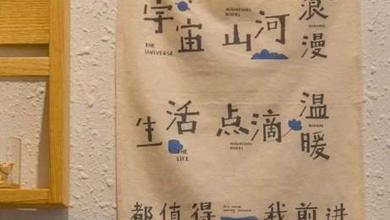 宇宙山河浪漫
THE UNIVERSE
生活点滴温暖
THE LIFE
都值得我前进